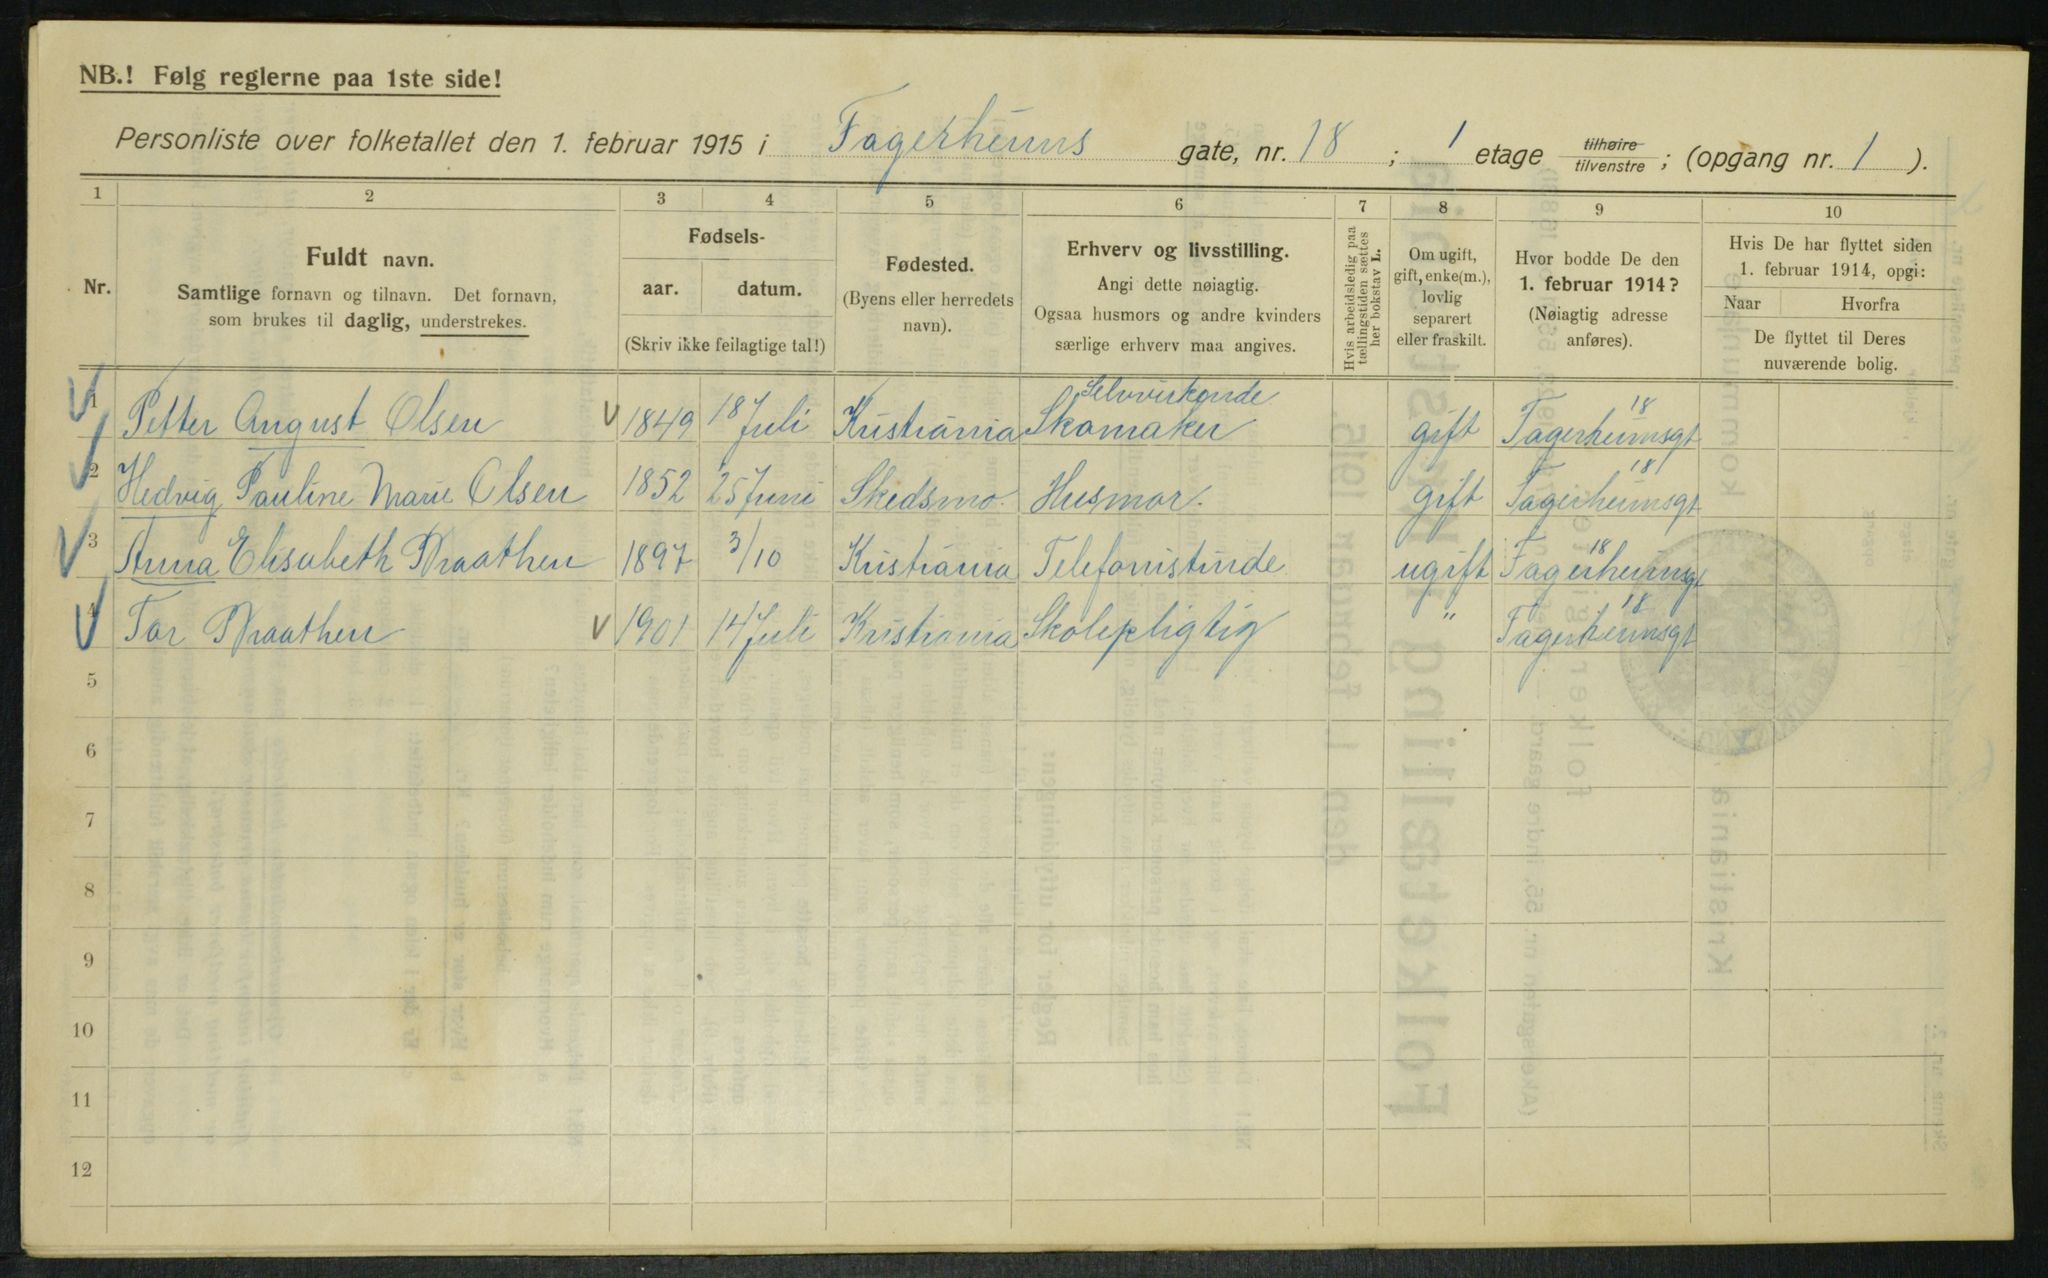 NB.! Følg reglerne paa 1ste side!
Personliste over folketallet den 1. februar 1915 i Fagerheims gate, nr. 18 ; 1 etage tilhøire tilvenstre ; (opgang nr. 1 ).
1 2 3 4 5 6 7 8 9 10
Nr.
Fuldt navn.
Samtlige fornavn og tilnavn. Det fornavn,
som brukes til daglig, understrekes.
Fødsels-
aar. datum.
(Skriv ikke feilagtige tal!)
Fødested.
(Byens eller herredets
navn).
Erhverv og livsstilling.
Angi dette nøiagtig.
Ogsaa husmors og andre kvinders
særlige erhverv maa angives.
Hvis arbeidsledig paa
tællingstiden sættes
her bokstav L.
Om ugift,
gift, enke(m.),
lovlig
separert
eller fraskilt.
Hvor bodde De den
1. februar 1914?
(Nøiagtig adresse
anføres).
Hvis De har flyttet siden
1. februar 1914, opgi:
Naar Hvorfra
De flyttet til Deres
nuværende bolig.
1 Petter August Olsen 1849 18 Juli Kristiania Selvvirkende Skomaker gift Fagerheimsgt 18
2 Hedvig Pauline Marie Olsen 1852 25 Juni Skedsmo Husmor. gift Fagerheimsgt 18
3 Anna Elisabeth Braathen 1897 3/10 Kristiania Telefonistinde ugift Fagerheimsgt 18
4 Tor Braathen 1901 14 Juli Kristiania Skolepligtig " Fagerheimsgt 18
5
6
7
8
9
10
11
12